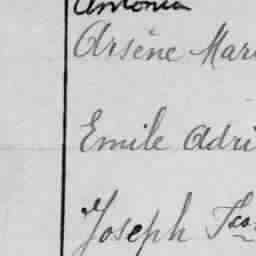 Antonia
Arsène Mari
Emile Adri
Joseph